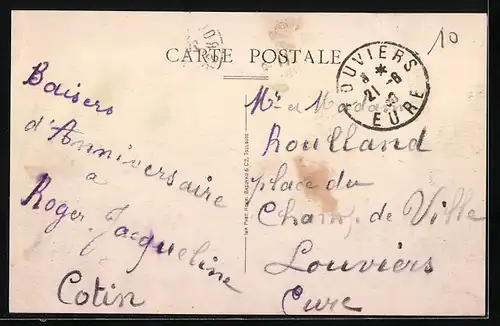 CARTE POSTALE
10
LOUVIERS
21-8
EURE
Baisers
d'Anniversaire
a
Roger Jacqueline
Cotin
Mr et Madame
Roulland
place du
Champ de Ville
Louviers
Eure